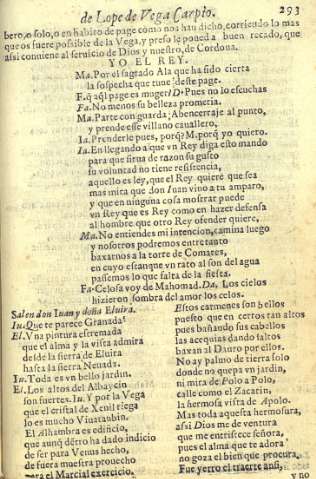 de Lope de Vega Carpio. 293
bero, o solo, o en habito de page como nos han dicho, corriendo lo mas
que os fuere possible de la Vega, y preso le poned a buen recado, que
assi conuiene al seruicio de Dios y nuestro, de Cordoua.
YO EL REY.
Ma. Por el sagrado Ala que ha sido cierta
la sospecha que tuue deste page.
F. q̃ aql page es muger? D. Pues no lo escuchas
Fa. No menos su belleza prometia.
Ma. Parte con guarda, Abencerraje al punto,
y prende esse villano cauallero,
Ia. Prenderle pues, porq̃? M. porq̃ yo quiero.
Ia. En llegando a que vn Rey diga esto mando
para que sirua de razon su gusto
su voluntad no tiene resistencia,
aquello es ley, que el Rey quiere que sea
mas mira que don Iuan vino a tu amparo,
y que en ninguna cosa mostrar puede
vn Rey que es Rey como en hazer defensa
al hombre que otro Rey ofender quiere,
Ma. No entiendes mi intencion, camina luego
y nosotros podremos entre tanto
baxarnos a la torre de Comares,
en cuyo estanque vn rato al son del agua
passemos lo que falta de la siesta.
Fa. Celosa voy de Mahomad. Da. Los cielos
hizieron sombra del amor los celos.
Salen don Iuan y doña Eluira.
Iu. Que te parece Granada?
El. Vna pintura estremada
que el alma y la vista admira
desde la sierra de Eluira
hasta la sierra Neuada.
Iu. Toda es vn bello jardin.
El. Los altos del Albaycin
son fuertes. Iu. Y por la Vega
que el cristal de Xenil riega
lo es mucho Viuataubin.
El Alhambra es edificio,
que aunq̃ dẽtro ha dado indicio
de ser para Venus hecho,
de fuera muestra prouecho
para el Marcial exercicio.
Estos carmenes son bellos
puesto que en certos tan altos
pues bañando sus caballos
las acequias dando saltos
baxan al Dauro por ellos.
No ay palmo de tierra solo
donde no quepa vn jardin,
ni mira de Polo a Polo,
calle como el Zacatin,
la hermosa vista de Apolo.
Mas toda aquesta hermosura,
assi Dios me de ventura
que me entristece señora,
pues el alma que te adora
no goza el bien que procura,
Fue yerro el traerte ansi,
y no